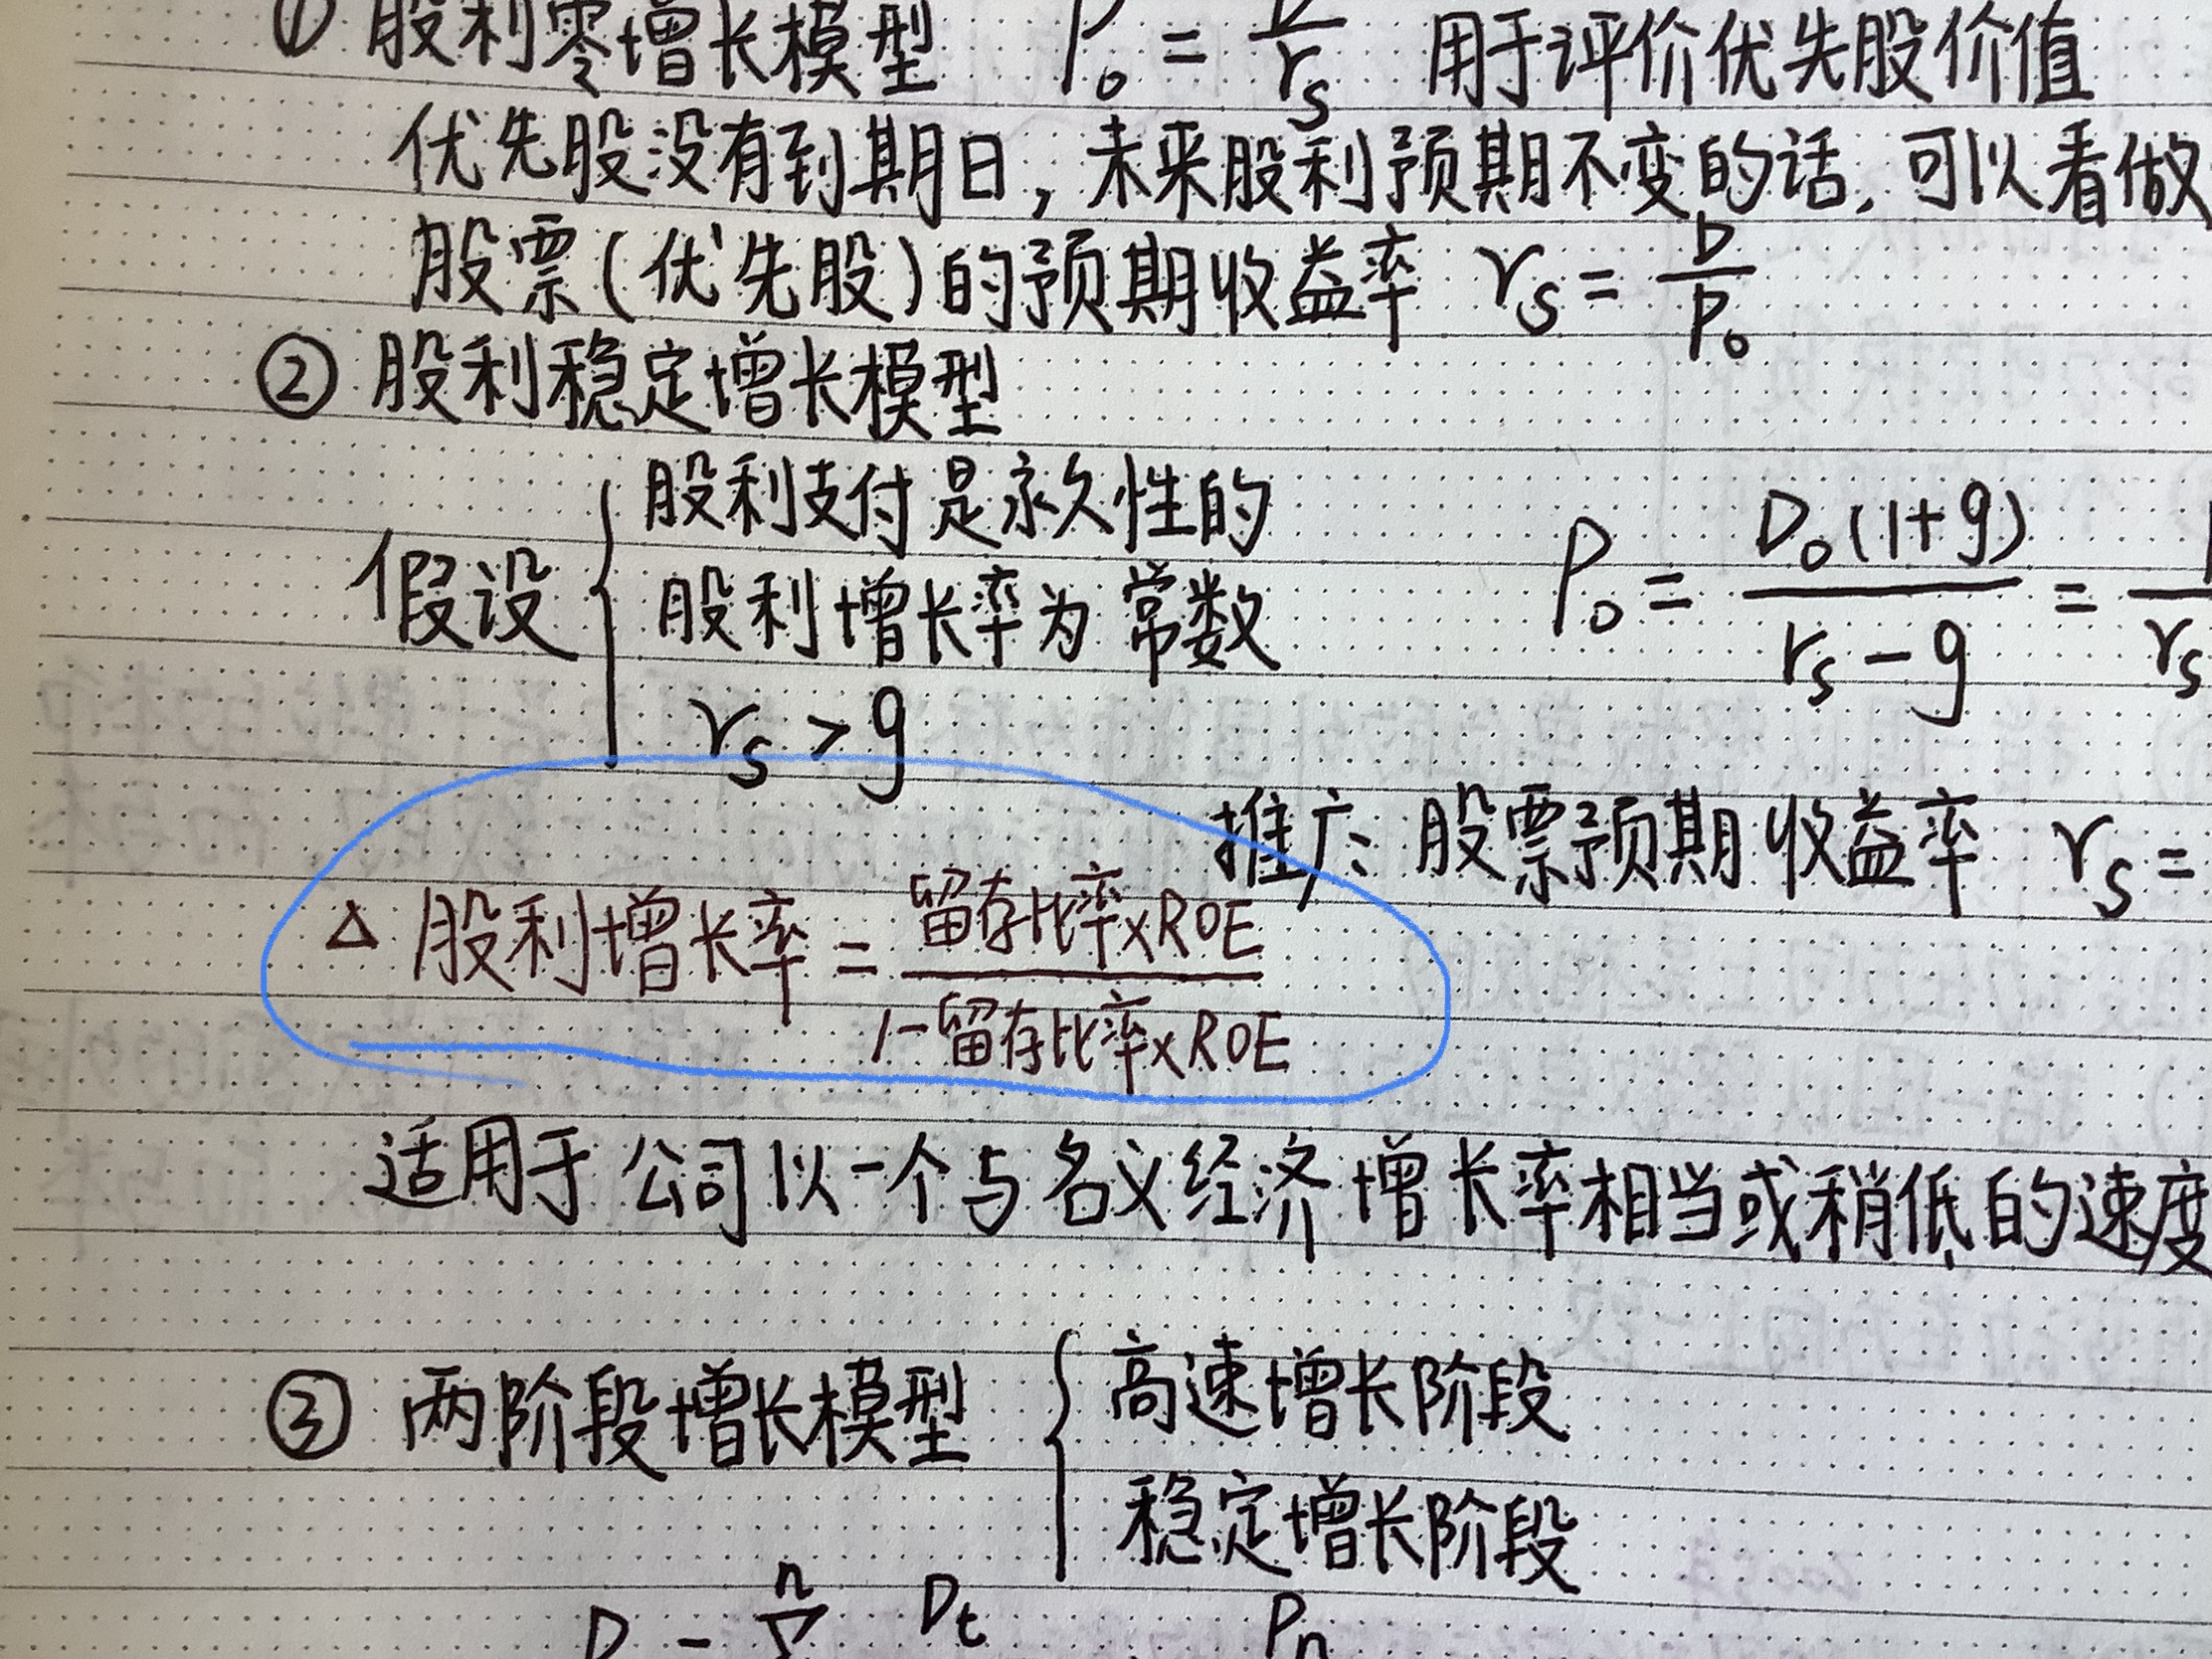 ① 股利零增长模型 P₀ = D/rₛ 用于评价优先股价值
优先股没有到期日,未来股利预期不变的话,可以看做
股票(优先股)的预期收益率 rₛ = D/P₀
② 股利稳定增长模型
假设 { 股利支付是永久性的
股利增长率为常数
rₛ > g
P₀ = D₀(1+g)/(rₛ-g) =
推广: 股票预期收益率 rₛ =
△ 股利增长率 = 留存比率×ROE/(1-留存比率×ROE)
适用于公司以一个与名义经济增长率相当或稍低的速度
③ 两阶段增长模型 { 高速增长阶段
稳定增长阶段
n
Dₜ Pₙ